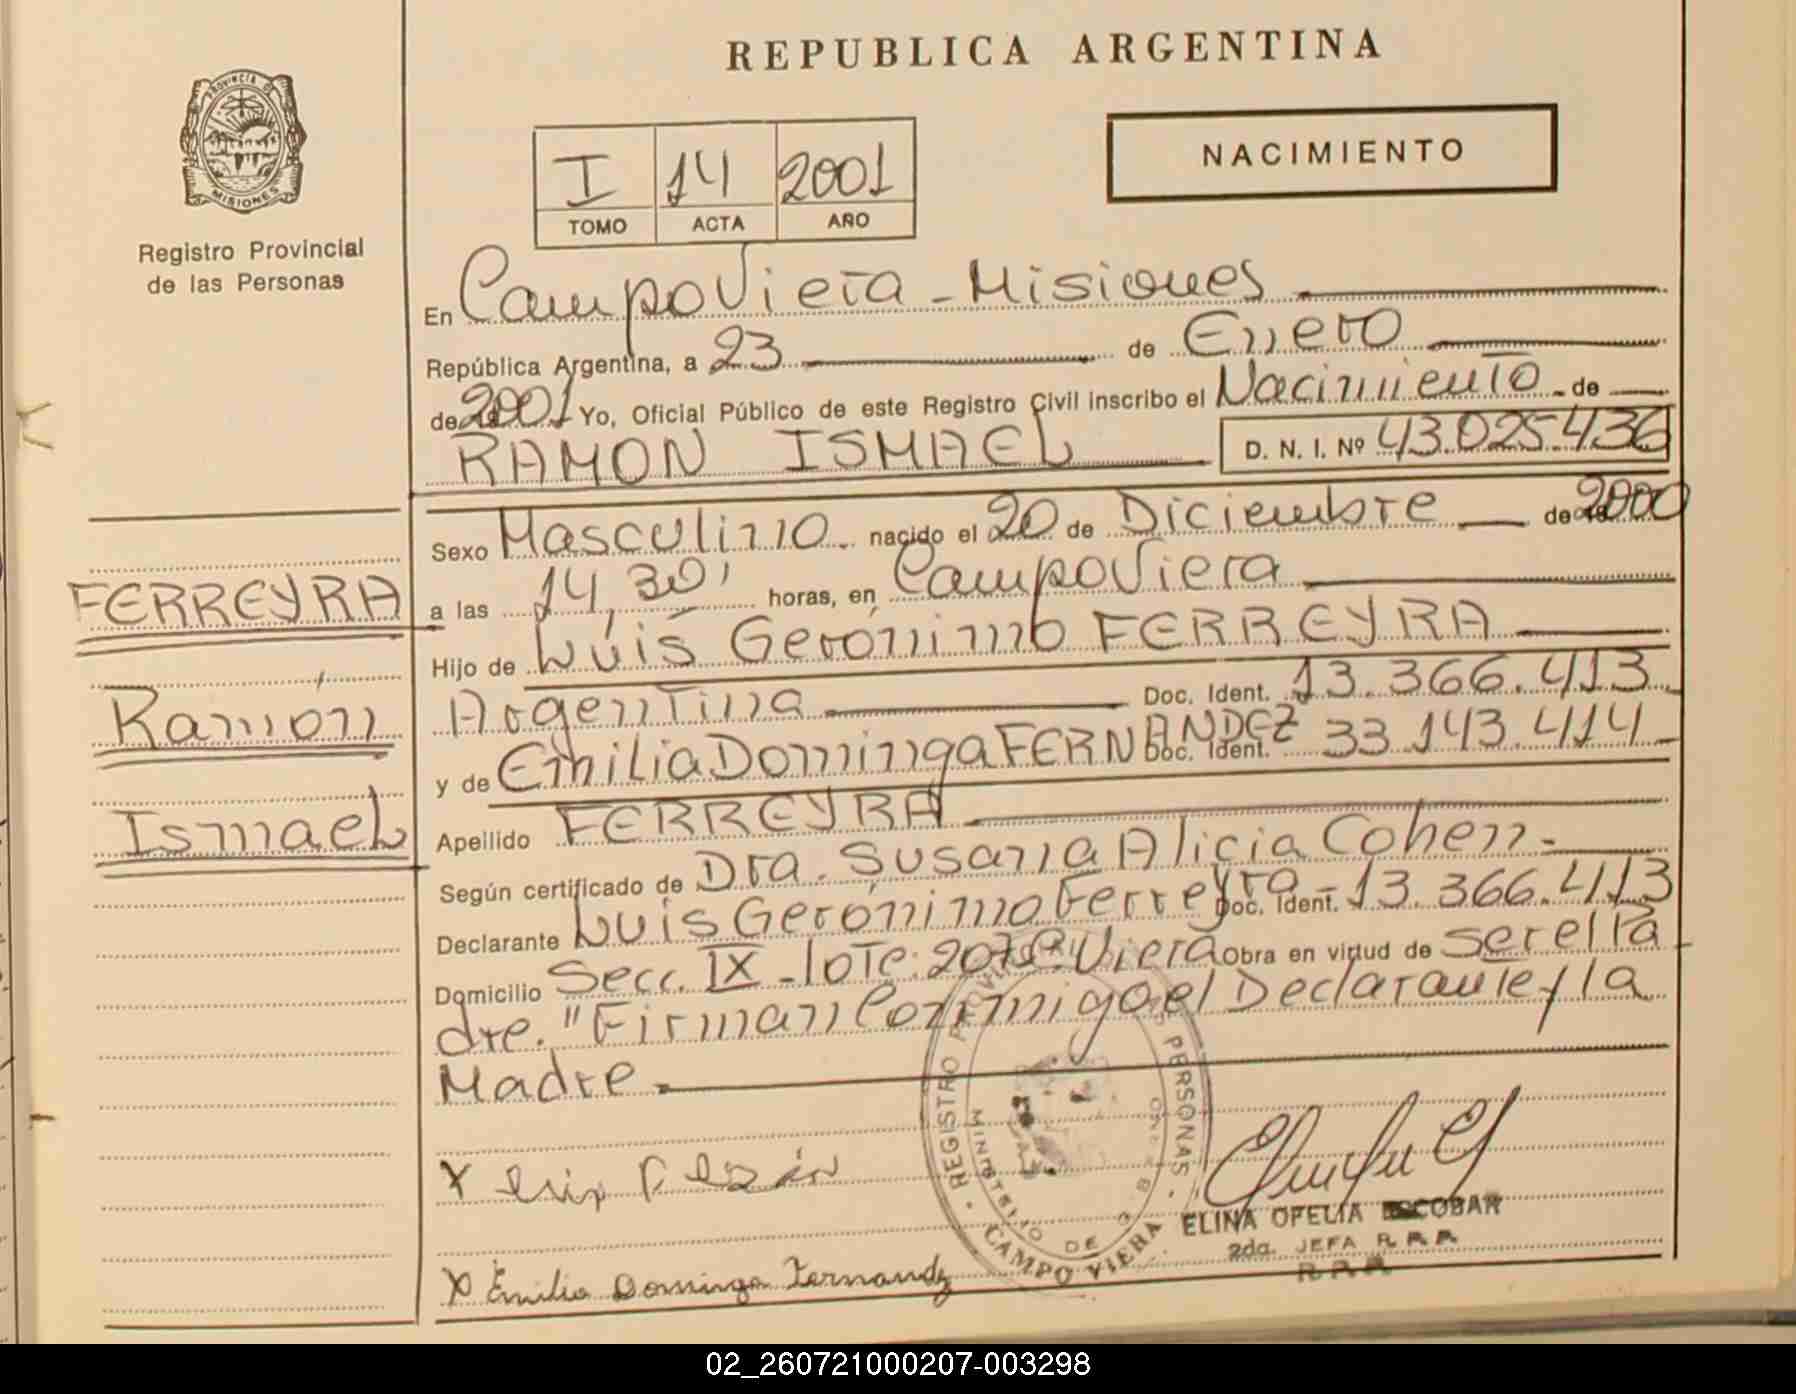 REPUBLICA ARGENTINA
PROVINCIA DE MISIONES
Registro Provincial
de las Personas
NACIMIENTO
I 14 2001
TOMO ACTA AÑO
En Campo Viera - Misiones
República Argentina, a 23 de Enero
de 2001 Yo, Oficial Público de este Registro Civil inscribo el Nacimiento de
RAMON ISMAEL D. N. I. Nº 43.025.436
Sexo Masculino nacido el 20 de Diciembre de 2000
a las 14,30' horas, en Campo Viera
Hijo de Luis Gerónimo FERREYRA
Argentina Doc. Ident. 13.366.413
y de Emilia Dominga FERNANDEZ Doc. Ident. 33.143.414
Apellido FERREYRA
Según certificado de Dra. Susana Alicia Cohen -
Declarante Luis Gerónimo Ferreyra - Doc. Ident. 13.366.413
Domicilio Secc. IX - lote: 207 C. Viera Obra en virtud de ser el Pa
dre. "Firman Conmigo el Declarante y la
Madre
FERREYRA
Ramón
Ismael
X
X Emilia Dominga Fernandz
REGISTRO PROVINCIAL DE LAS PERSONAS
MINISTERIO DE
CAMPO VIERA
ELINA OFELIA ESCOBAR
2da. JEFA R.P.P.
R.P.P.
02_260721000207-003298